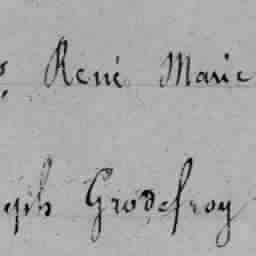 René Marie
eph Grodefroy